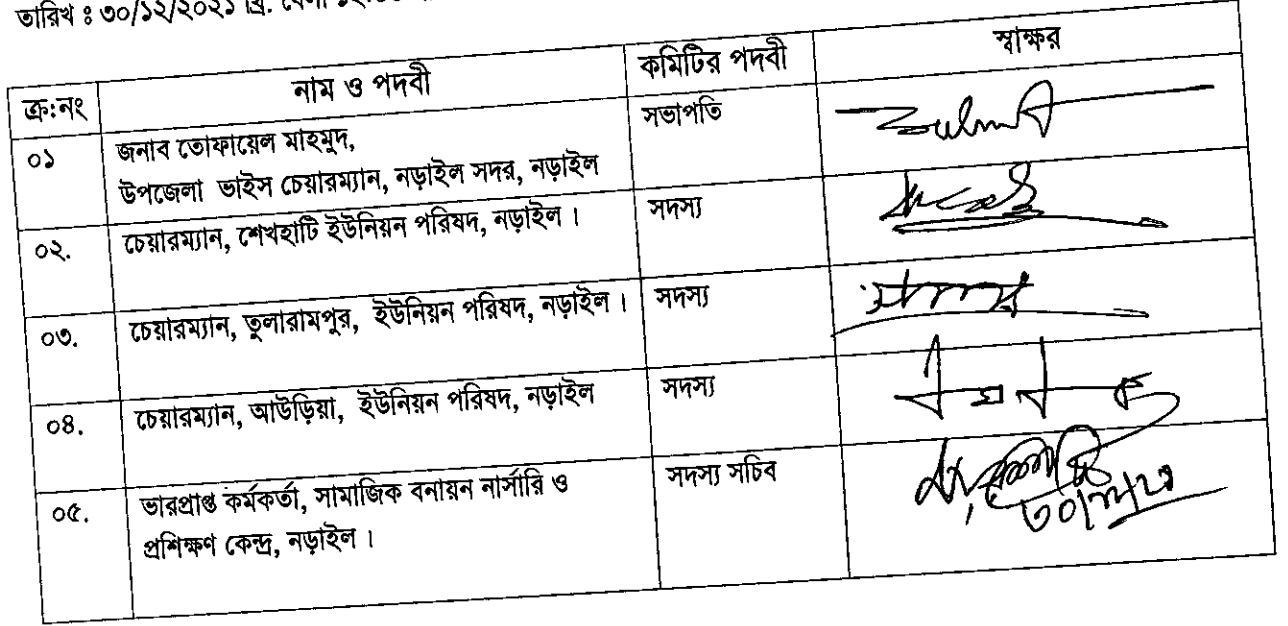 তারিখ ঃ ৩০/১২/২০২১ খ্রি. বেলা
ক্র:নং নাম ও পদবী কমিটির পদবী স্বাক্ষর
০১ জনাব তোফায়েল মাহমুদ, সভাপতি
উপজেলা ভাইস চেয়ারম্যান, নড়াইল সদর, নড়াইল
০২. চেয়ারম্যান, শেখহাটি ইউনিয়ন পরিষদ, নড়াইল । সদস্য
০৩. চেয়ারম্যান, তুলারামপুর, ইউনিয়ন পরিষদ, নড়াইল । সদস্য
০৪. চেয়ারম্যান, আউড়িয়া, ইউনিয়ন পরিষদ, নড়াইল সদস্য
০৫. ভারপ্রাপ্ত কর্মকর্তা, সামাজিক বনায়ন নার্সারি ও সদস্য সচিব
প্রশিক্ষণ কেন্দ্র, নড়াইল ।